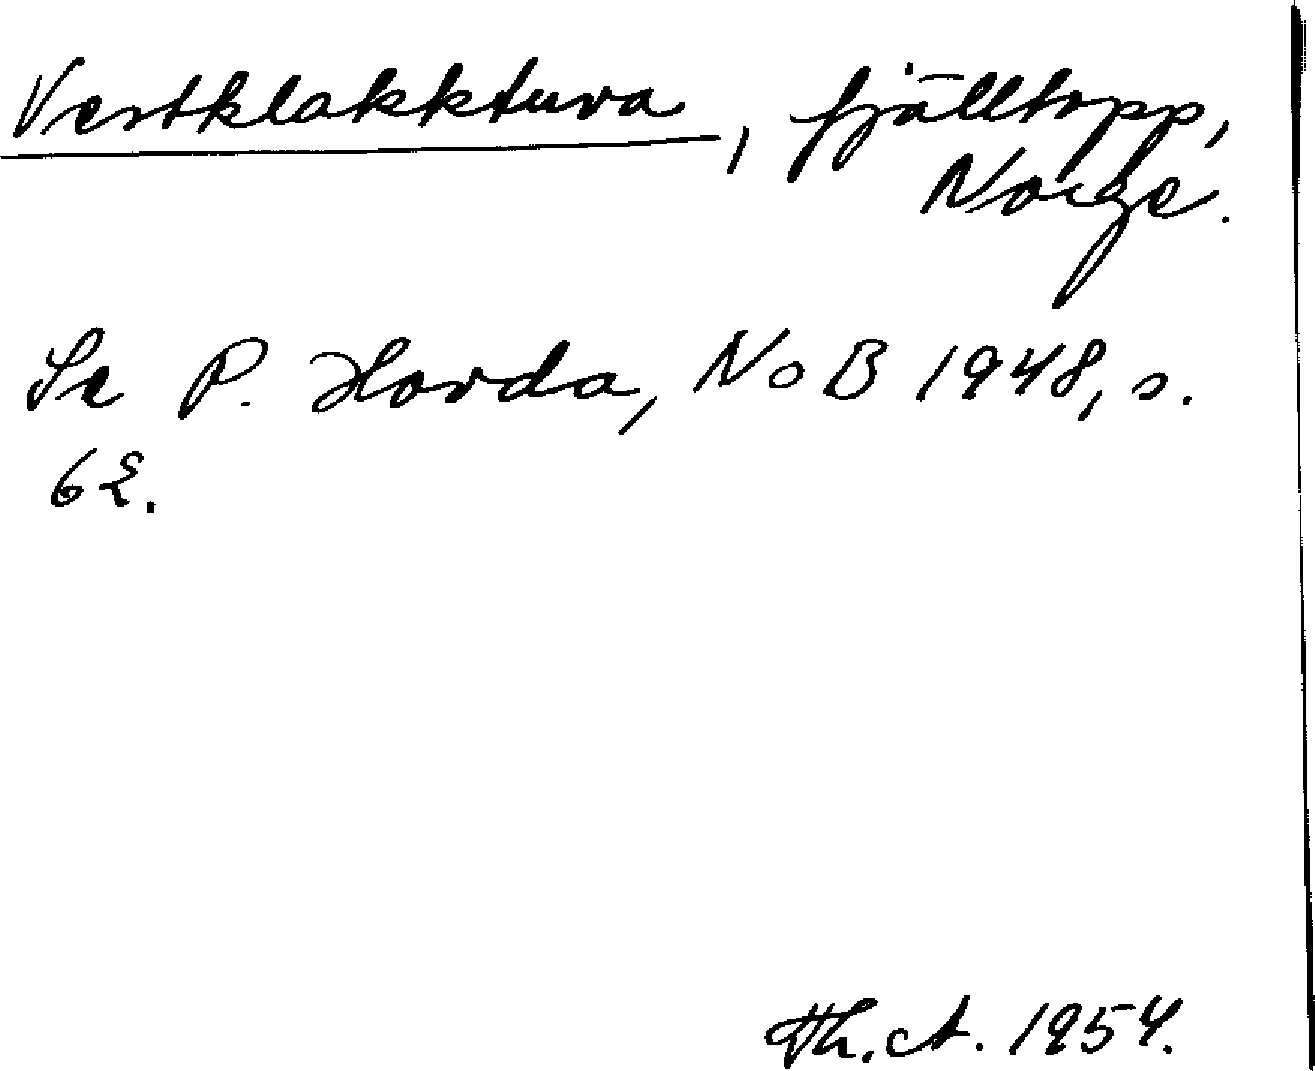 Vestklakktuva, fjälltopp,
Norge.
Se P. Hovda, NoB 1948, s.
62.
Th. A. 1954.